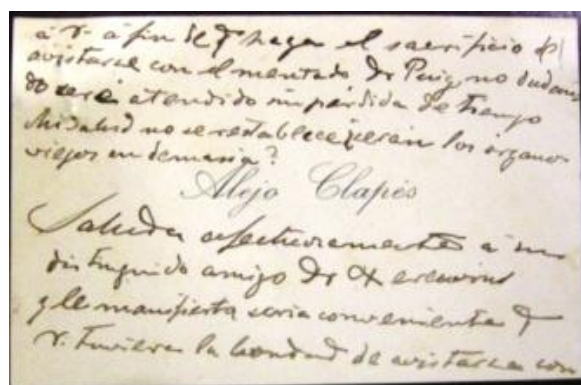 á V. á fin de q haga el sacrificio de
avistarse con el mentado Dr Puig no dudan
do será atendido sin pérdida de tiempo
Mi salud no se restablece serán los órganos
viejos en demasía?
Alejo Clapés
Saluda afectuosamente á su
distinguido amigo Dr
y le manifiesta seria conveniente q
V. tuviera la bondad de avistarse con